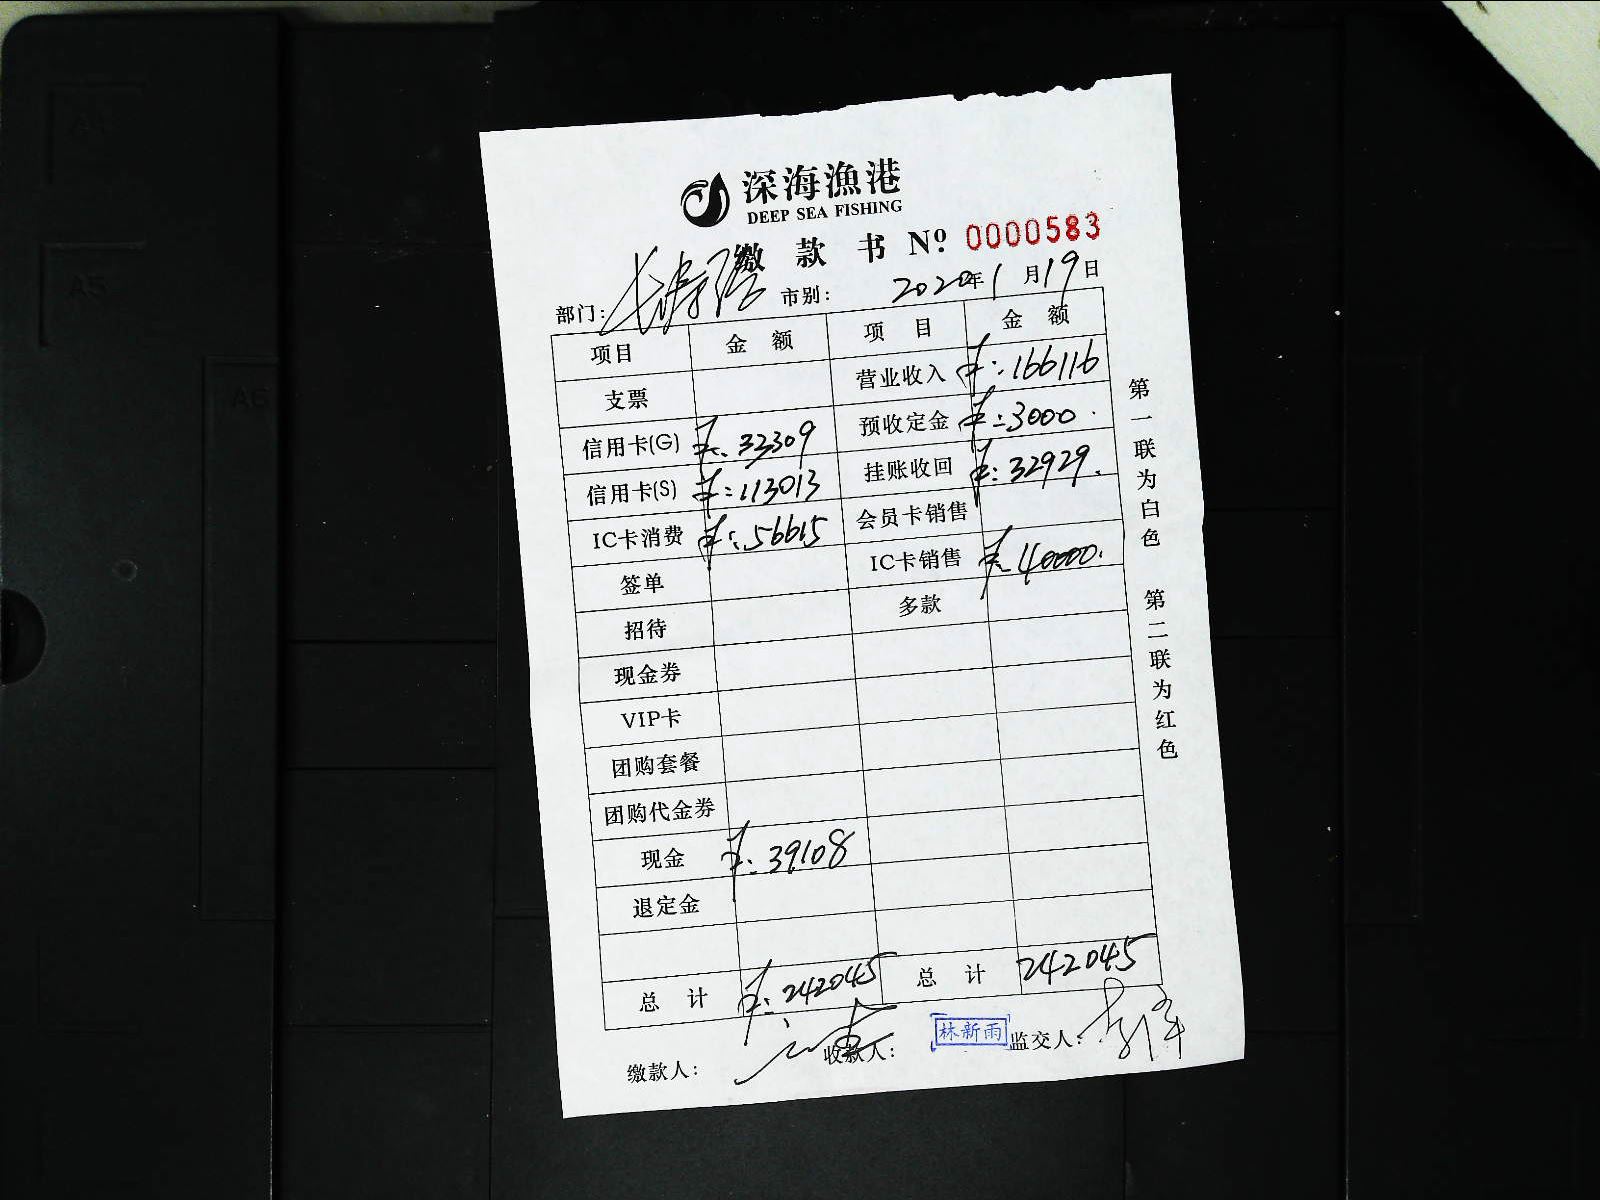 A4
A5
A6
深海渔港
DEEP SEA FISHING
缴 款 书 Nº: 0000583
部门: 长寿路 市别: 2020年1月19日
项目 金 额 项 目 金 额
支票 营业收入 ¥:166116
信用卡(G) ¥:33309 预收定金 ¥:3000
信用卡(S) ¥:113013 挂账收回 ¥:32929.
IC卡消费 ¥:56615 会员卡销售
签单 IC卡销售 ¥:40000.
招待 多款
现金券
VIP卡
团购套餐
团购代金券
现金 ¥:39108
退定金
总 计 ¥:242045 总 计 242045
缴款人: 收款人: 林新雨 监交人:
第一联为白色 第二联为红色